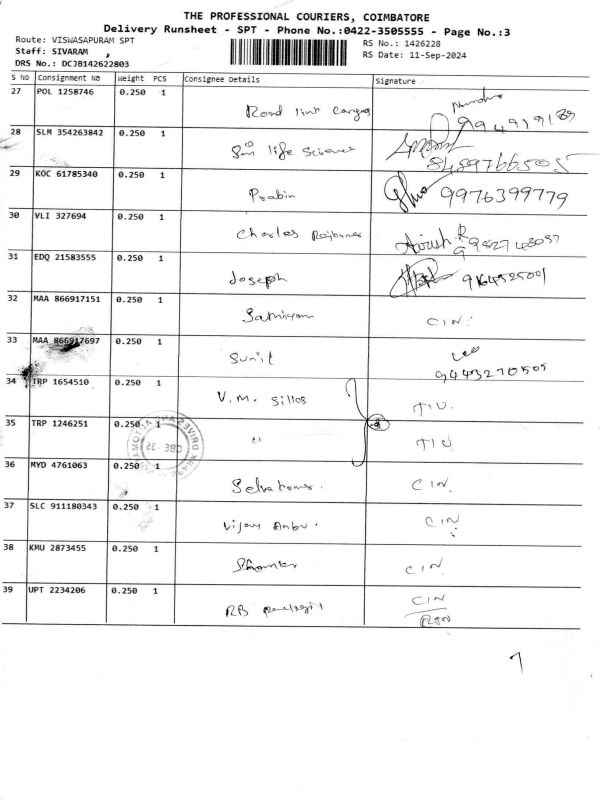 THE PROFESSIONAL COURIERS, COIMBATORE
Delivery Runsheet - SPT - Phone No.:0422-3505555 - Page No.:3
Route: VISWASAPURAM SPT
RS No.: 1426228
Staff: SIVARAM
RS Date: 11-Sep-2024
DRS No.: DCJB142622803
S No Consignment No Weight PCS Consignee Details Signature
27 POL 1258746 0.250 1
28 SLM 354263842 0.250 1 life
29 KOC 61785340 0.250 1 Prabin 9976399779
30 VLI 327694 0.250 1 Charles
31 EDQ 21583555 0.250 1 Joseph
32 MAA 866917151 0.250 1 CIN
33 MAA 866917697 0.250 1 Sunil 9443270505
34 TRP 1654510 0.250 1 V.M. Silks
35 TRP 1246251 0.250 1 "
36 MYD 4761063 0.250 1 CIN
37 SLC 911180343 0.250 1 Vijay Anbu. CIN
38 KMU 2873455 0.250 1 CIN
39 UPT 2234206 0.250 1 RB CIN